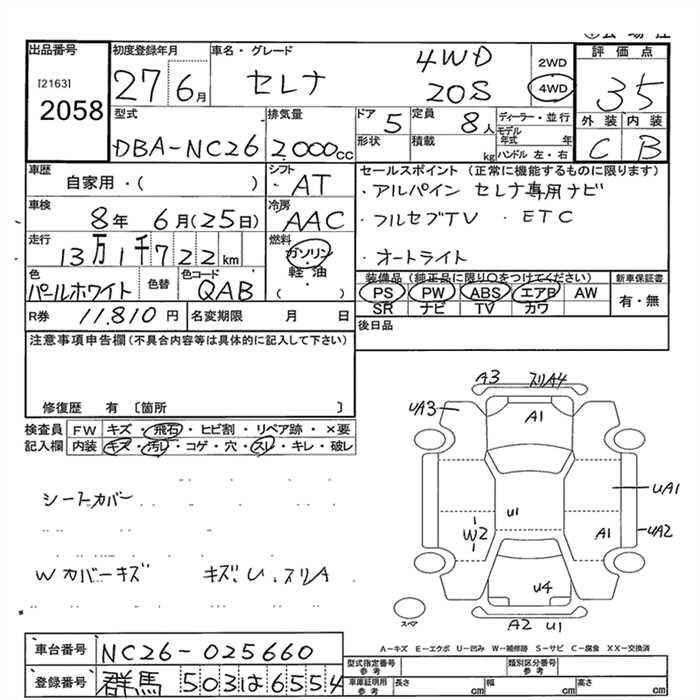 出品番号
[2163]
2058
初度登録年月
27 6月
車名・グレード
セレナ
4WD
20S
2WD
4WD
評価点
35
外装 内装
C B
型式
DBA-NC26
排気量
2.000cc
ドア
5
定員
8人
ディーラー・並行
モデル年式 年
形状
積載
kg
ハンドル 左・右
車歴
自家用・( )
シフト
・AT
セールスポイント (正常に機能するものに限ります)
・アルパイン セレナ専用ナビ
・フルセブTV ・ETC
・オートライト
車検
8年 6月(25日)
冷房
AAC
走行
13万1千722km
燃料
ガソリン
軽油
・( )
色
パールホワイト
色替
色コード
QAB
装備品 (純正品に限り○をつけてください)
PS PW ABS エアB AW
SR ナビ TV カワ
新車保証書
有・無
R券 11.810円
名変期限 月 日
後日品
注意事項申告欄(不具合内容等は具体的に記入して下さい)
修復歴 有 〔箇所 〕
検査員記入欄
FW キズ・飛石・ヒビ割・リペア跡・×要
内装 キズ・汚レ・コゲ・穴・スレ・キレ・破レ
シートカバー
Wカバーキズ キズ、U、スリA
A3 スリA4
UA3
A1
UA1
U1
W2
A1
UA2
U4
スペア
A2 U1
A-キズ E-エクボ U-凹み W-補修跡 S-サビ C-腐食 XX-交換済
車台番号
NC26-025660
登録番号
群馬 503は6554
型式指定番号
参考
類別区分番号
参考
車庫証明用
参考
長さ cm
幅 cm
高さ cm